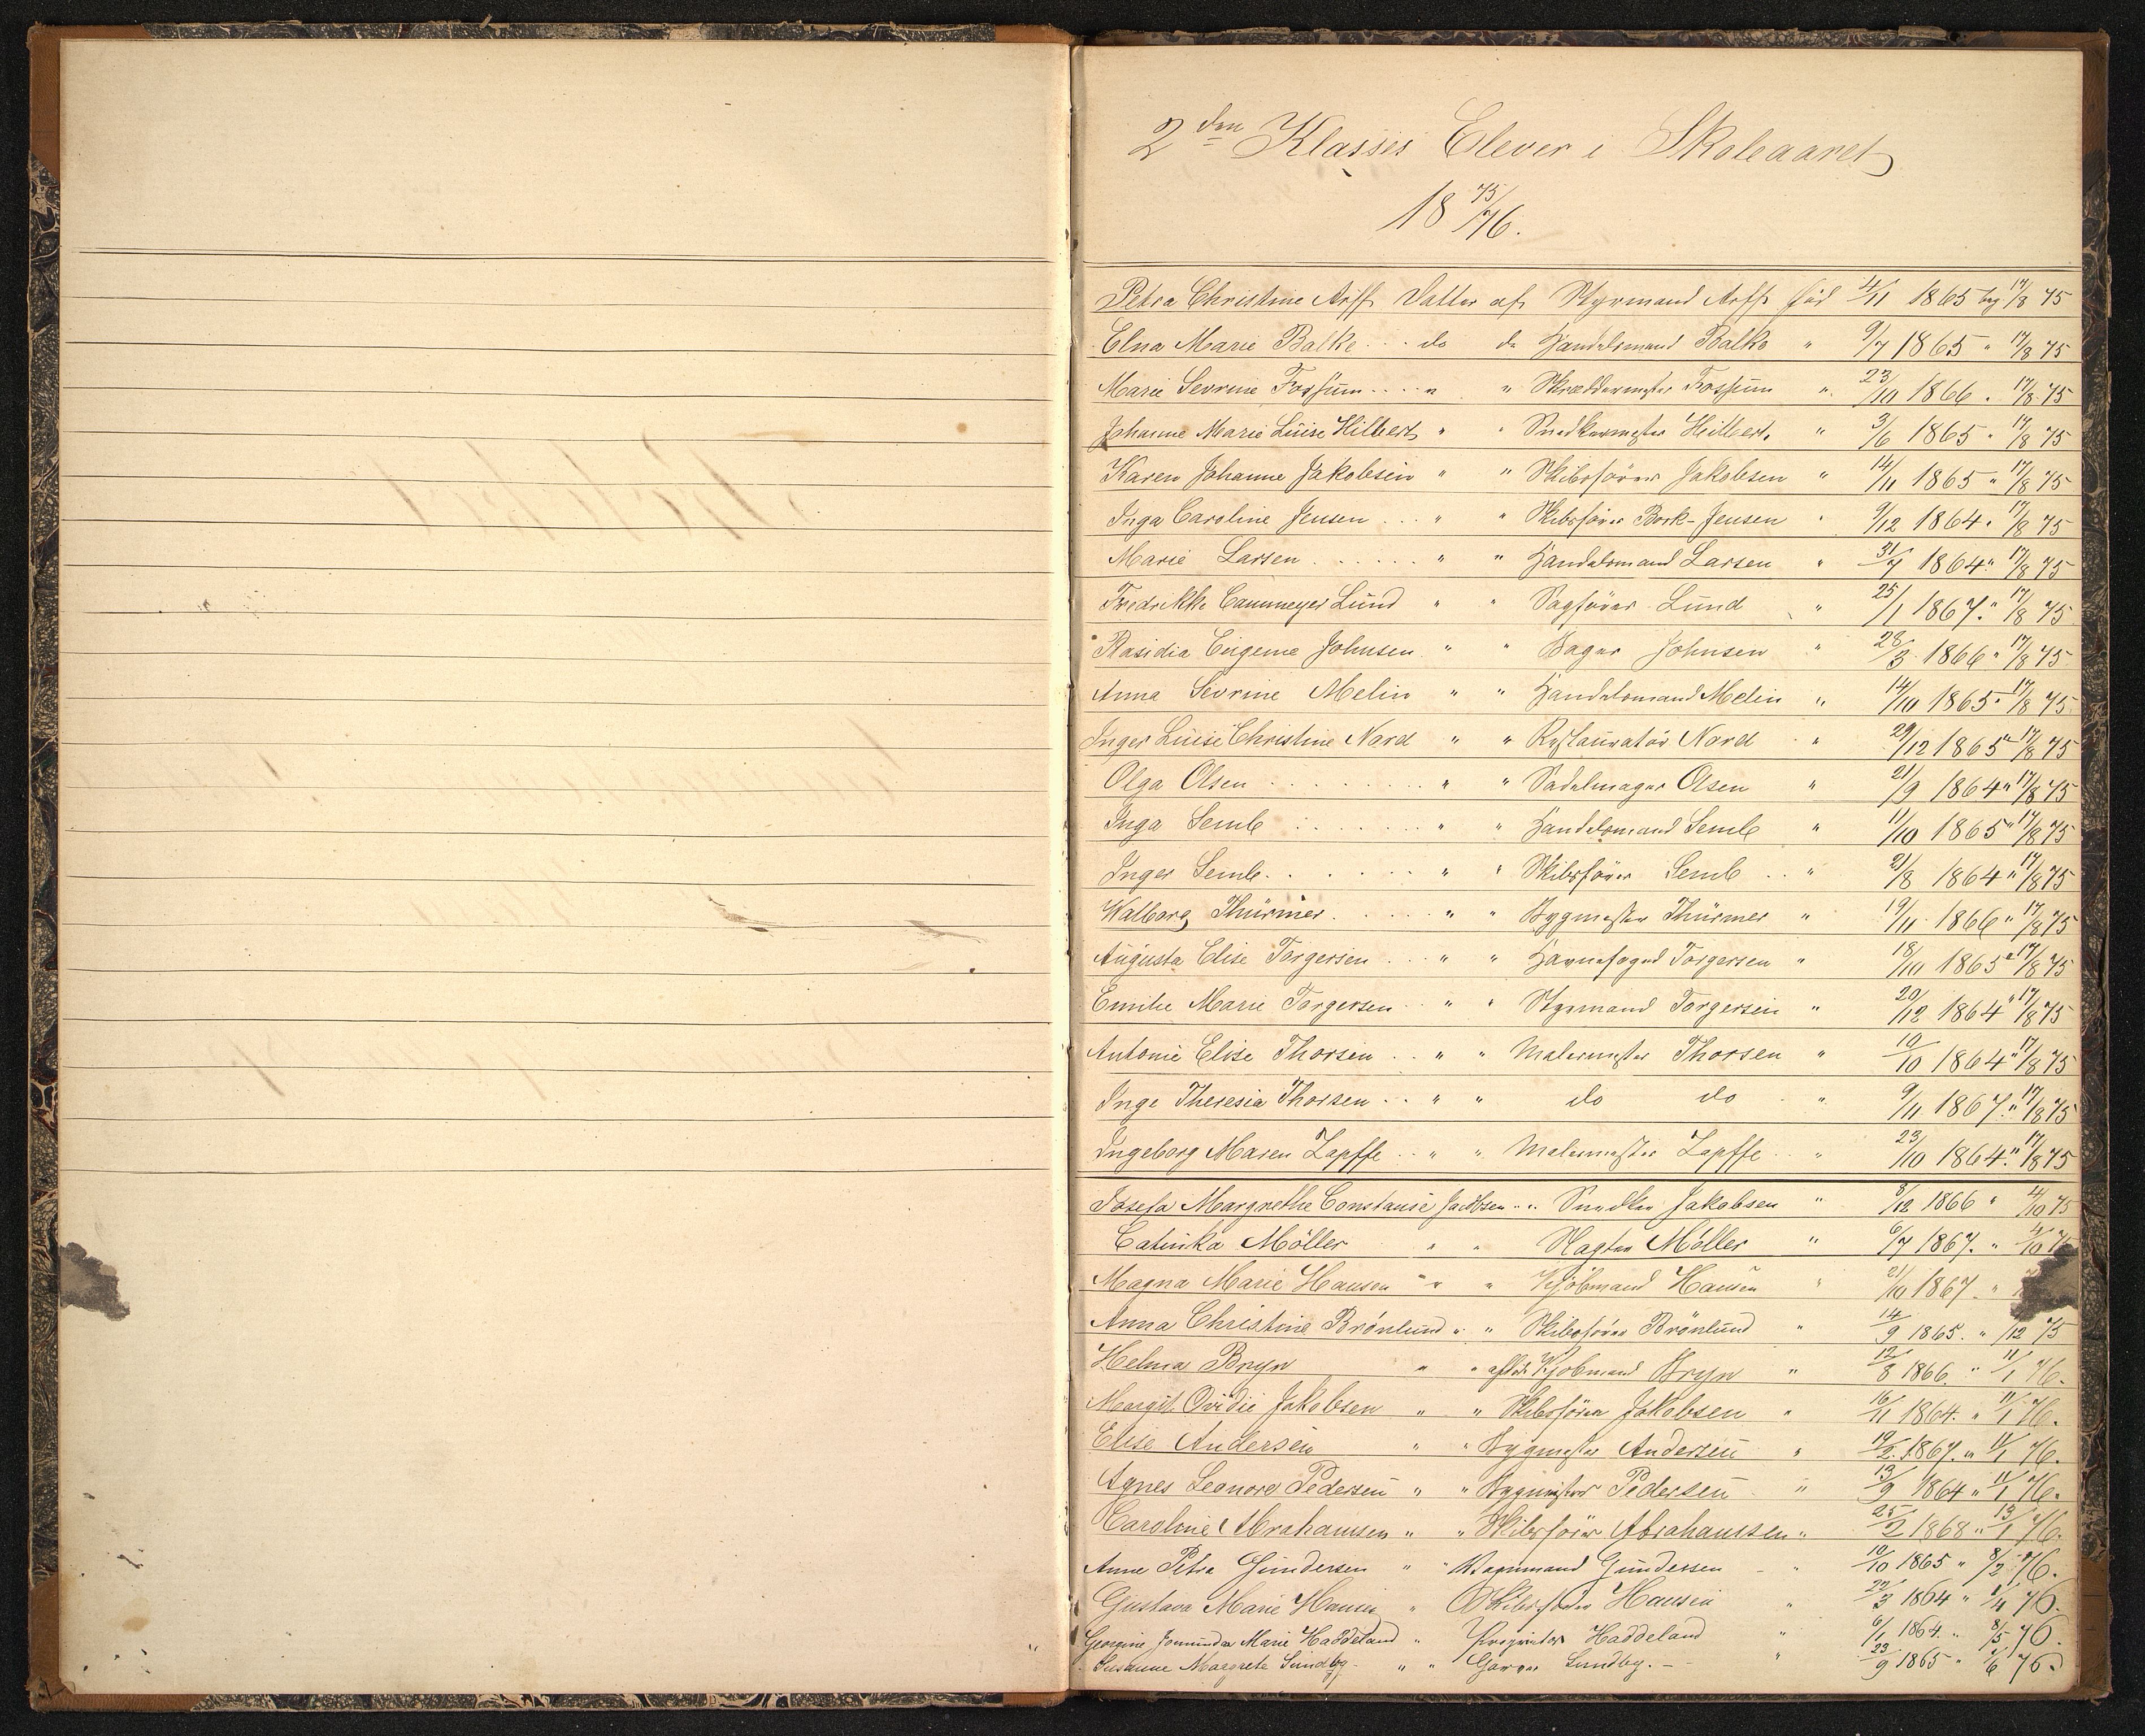 2den Klasses Elever i Skoleaaret
18 75/76.
Petra Christine Arff Datter af Styrmand Arff född 4/11 1865 beg 17/8 75
Elna Marie Balke do do Handelsmand Balke " 9/7 1865 " 17/8 75
Marie Sevrine Fossum " " Skræddermester Fossum " 23/10 1866 " 17/8 75
Johanne Marie Luise Hilbert " " Snedkermester Hilbert " 3/6 1865 " 17/8 75
Karen Johanne Jakobsen " " Skibsförer Jakobsen " 14/11 1865 " 17/8 75
Inga Caroline Jensen " " Skibsförer Bork-Jensen " 9/12 1864 " 17/8 75
Marie Larsen " " Handelsmand Larsen " 31/7 1864 " 17/8 75
Fredrikke Cammeyer Lund " " Sagförer Lund " 25/1 1867 " 17/8 75
Rasidia Eugenie Johnsen " " Bager Johnsen " 28/3 1866 " 17/8 75
Anna Sevrine Melin " " Handelsmand Melin " 14/10 1865 " 17/8 75
Inger Luise Christine Nord " " Restauratör Nord " 29/12 1865 " 17/8 75
Olga Olsen " " Sadelmager Olsen " 21/9 1864 " 17/8 75
Inga Semb " " Handelsmand Semb " 11/10 1865 " 17/8 75
Inger Semb " " Skibsförer Semb " 21/8 1864 " 17/8 75
Walborg Thürmer " " Bygmester Thürmer " 19/11 1866 " 17/8 75
Augusta Elise Torgersen " " Havnefoged Torgersen " 18/10 1865 " 17/8 75
Emilie Marie Torgersen " " Styrmand Torgersen " 20/12 1864 " 17/8 75
Antonie Elise Thorsen " " Malermester Thorsen " 10/10 1864 " 17/8 75
Inge Theresia Thorsen " " do do " 9/11 1867 " 17/8 75
Ingeborg Maren Zapffe " " Malermester Zapffe " 23/10 1864 " 17/8 75
Josefa Margrethe Constanse Jacobsen " " Snedker Jakobsen " 8/12 1866 " 4/10 75
Catinka Möller " " Slagter Möller " 6/7 1867 " 4/10 75
Magna Marie Hansen " " Kjöbmand Hansen " 21/10 1867 "
Anna Christine Brönlund " " Skibsförer Brönlund " 14/9 1865 " 1/12 75
Helma Bryn " " afdöde Kjöbmand Bryn " 12/8 1866 " 11/1 76.
Margit Ovidie Jakobsen " " Skibsförer Jakobsen " 16/11 1864 " 11/1 76.
Elise Andersen " " Bygmester Andersen " 19/2 1867 " 11/1 76.
Agnes Leonore Pedersen " " Bygmester Pedersen " 13/9 1864 " 11/1 76.
Caroline Abrahamsen " " Skibsförer Abrahamsen " 25/2 1868 " 13/1 76.
Anne Petra Gundersen " " Gundersen " 10/10 1865 " 8/2 76.
Gustava Marie Hansen " Skibsförer Hansen " 22/3 1864 " 1/4 76.
Georgine Marie Haddeland " Proprietær Haddeland " 6/1 1864 " 8/5 76.
Susanne Margrete Sundby " " Garver Sundby " 23/9 1865 " 1/6 76.